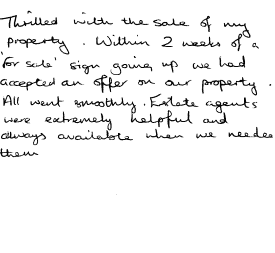 Thrilled with the sale of my
property. Within 2 weeks of a
'for sale' sign going up we had
accepted an offer on our property.
All went smoothly. Estate agents
were extremely helpful and
always available when we neede
them